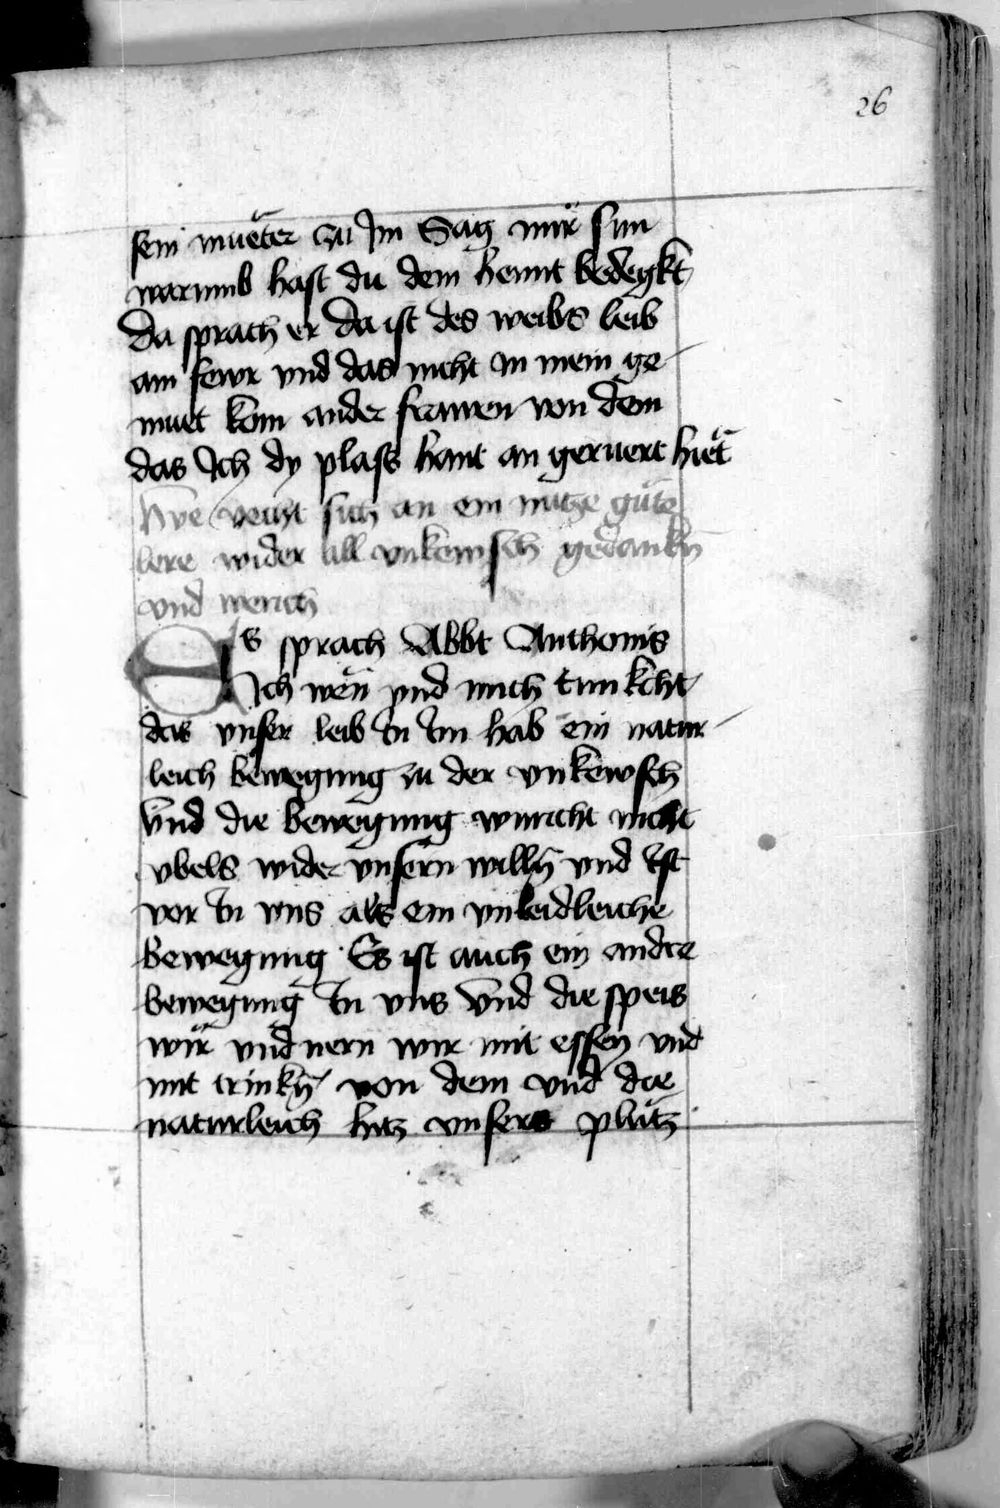 26
sein mueter zu Im Sag mir sun
warumb hast du dein hennt bedegkt
Da sprach er da ist des weibs leib
ain fewr vnd das nicht in mein ge-
muet kom ander frawen von dem
das Ich dy plass hant an geruert hiet
Hye vecht sich an ein nucze gute
lere wider all vnkewsch gedankn
vnd werich
Es sprach Abbt Anthonis
Ich wen vnd mich tunkcht
das vnser leib In Im hab ein natur-
leich bewegung zu der vnkewsch
Vnd die bewegung wuricht nicht
vbels wider vnsern willn vnd Ist
vor In vns als ein vnleidleiche
bewegung Es ist auch ein andre
bewegung In vns Vnd die speis
wir vnd nern wir mit essen vnd
mit trinkn von dem vnd die
naturleich hitz vnsers plutz